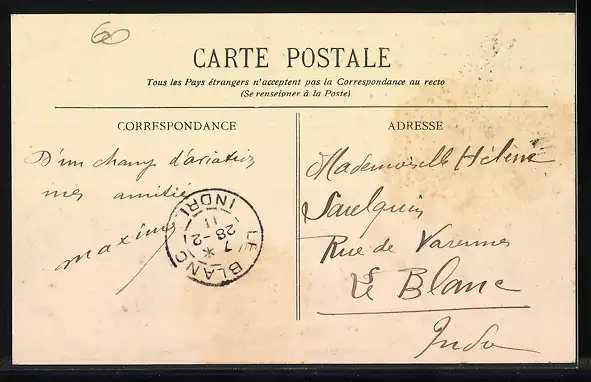 60
CARTE POSTALE
Tous les Pays étrangers n'acceptent pas la Correspondance au recto
(Se renseigner à la Poste)
CORRESPONDANCE
D'un champ d'aviation
mes amitiés
maxime
ADRESSE
Mademoiselle Hélène
Rue de Varennes
Le Blanc
Indre
LE BLANC
INDRE
7 *
28 -2
11